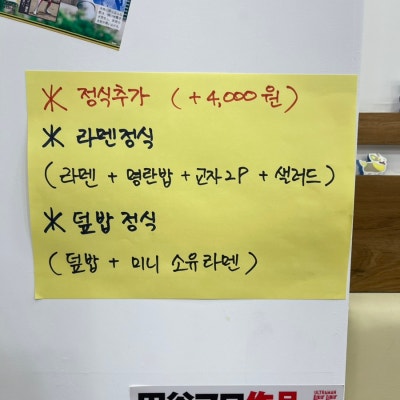 ※ 정식추가 (+4,000원)
※ 라멘정식
(라멘 + 명란밥 + 교자2P + 샐러드)
※ 덮밥 정식
(덮밥 + 미니 소유라멘)
ULTRAMAN